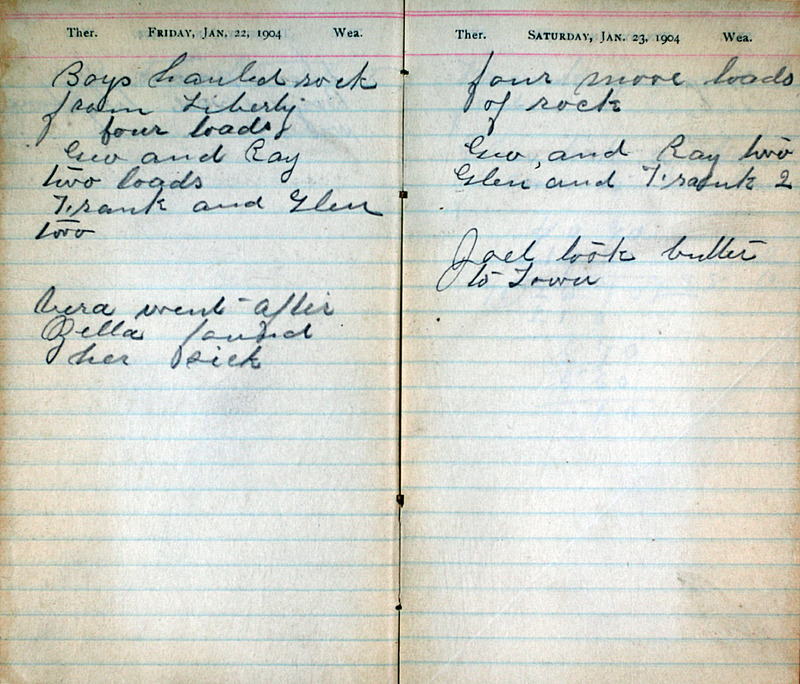 Ther. FRIDAY, JAN. 22, 1904 Wea.
Boys hauled rock
from Liberty
four loads
Geo and Ray
two loads
Frank and Glen
two
Vera went after
Zella found
her sick
Ther. SATURDAY, JAN. 23, 1904 Wea.
four more loads
of rock
Geo, and Ray two
Glen and Frank 2
Joel took butter
to Town